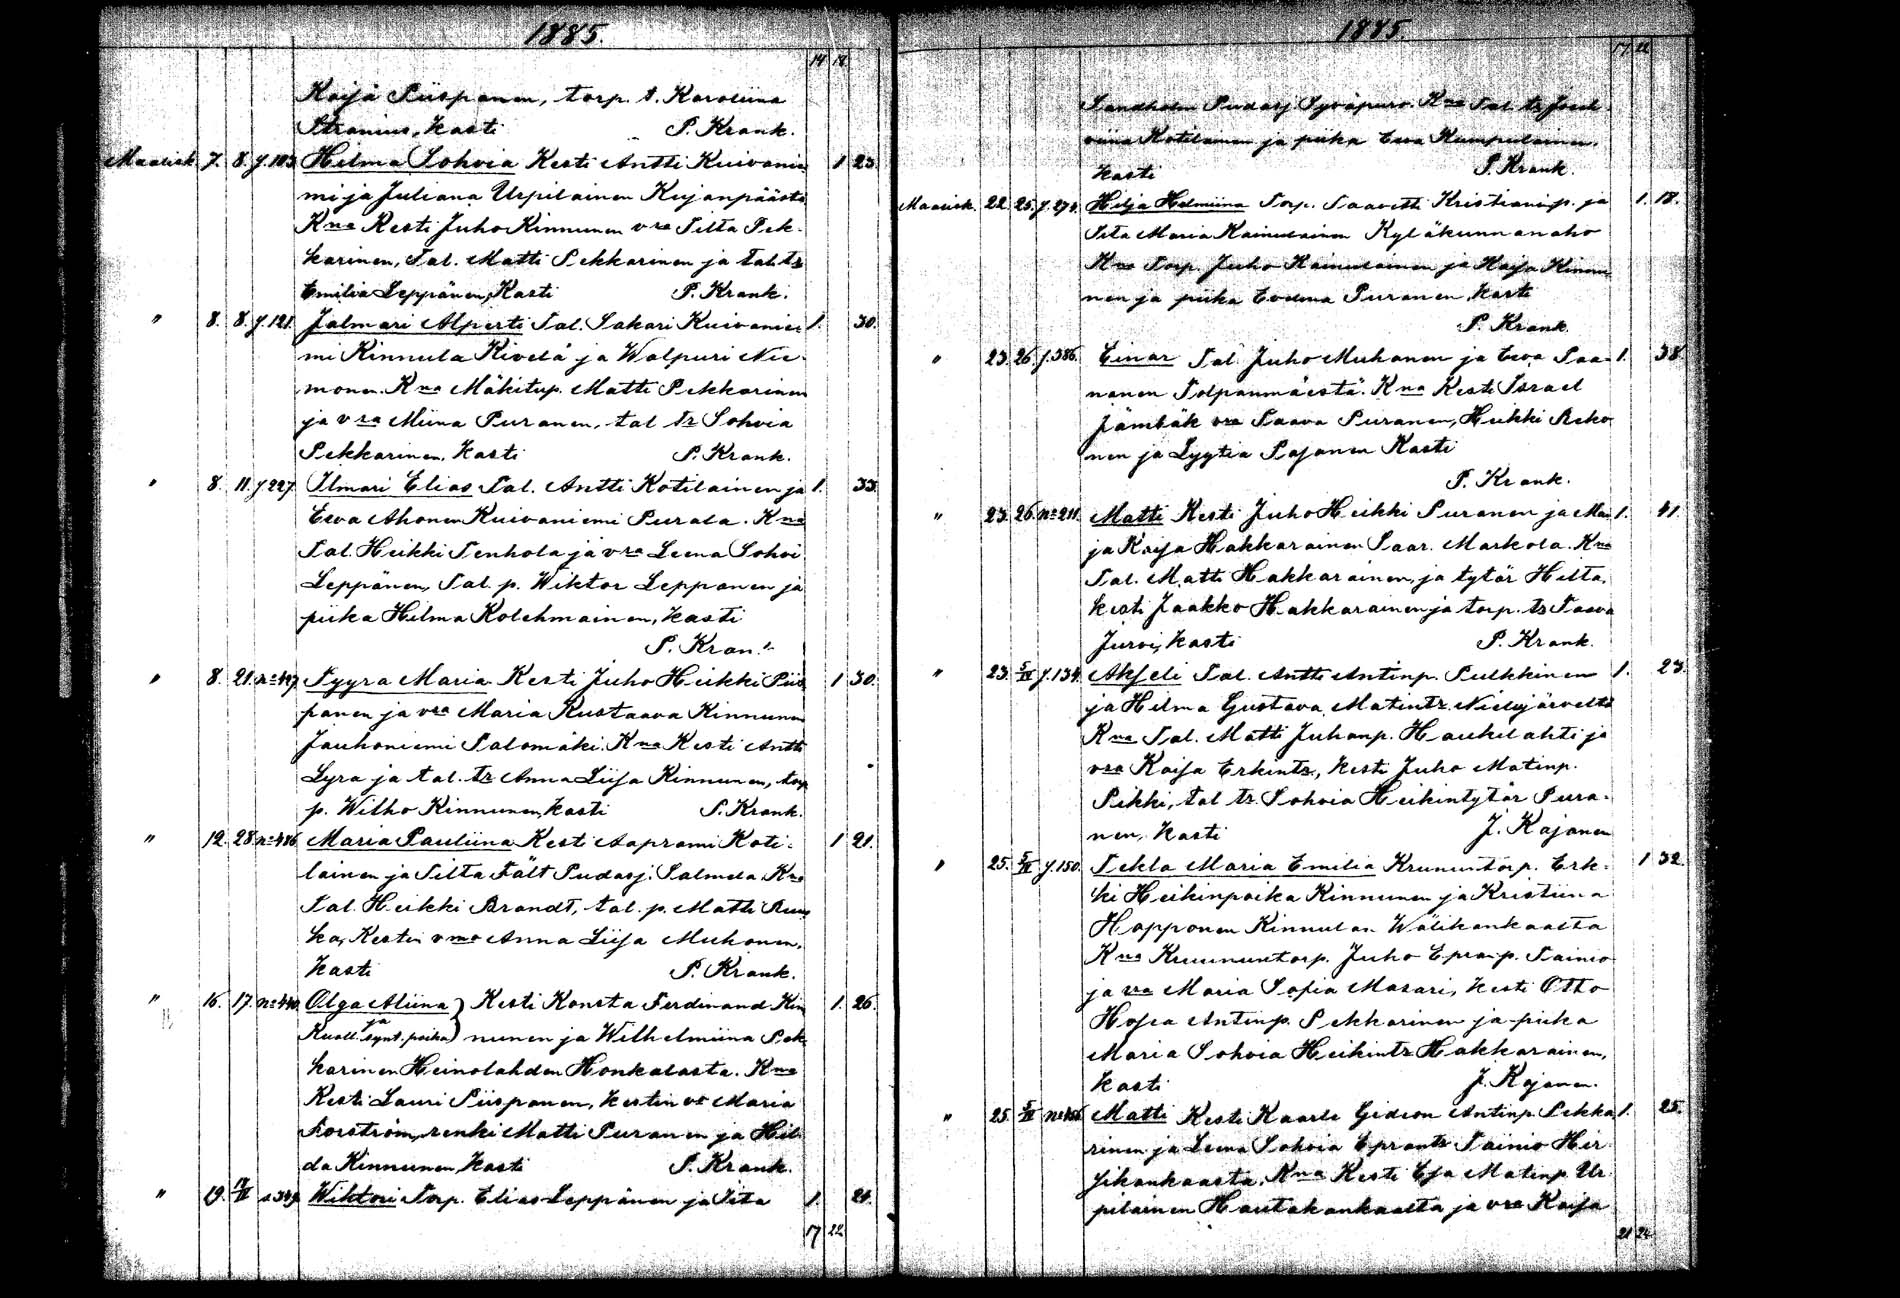 1885.
14 18
Kaisa Piispanen, torp. t. Karoliina
Stranius, kasti P. Krank.
Maalisk. 7. 8. f. 103 Hilma Sohvia Kesti Antti Kuivanie- 1 23.
mi ja Juliana Urpilainen Kujanpäästä
Kna Kesti Juho Kinnunen vra Tilta Pek-
karinen, Tal. Matti Pekkarinen ja tal. tr
Emilia Leppänen, Kasti P. Krank.
" 8. 8. f. 121. Jalmari Alperti Tal. Sakari Kuivanie- 1. 30.
mi Kinnula Kivelä ja Walpuri Nie-
monen. Kna Mäkitup. Matti Pekkarinen
ja vra Miina Puranen, tal tr Sohvia
Pekkarinen, Kasti P. Krank.
" 8. 11. f 227. Ilmari Elias Tal. Antti Kotilainen ja 1. 33.
Eeva Ahonen Kuivaniemi Purala. Kna
Tal. Heikki Penhola ja vra Leena Sohvi
Leppänen, Tal. p. Wiktor Leppanen ja
piika Hilma Kolehmainen, kasti
P. Kran
" 8. 21. Kesti Juho Heikki Piis- 1 30.
Tyyra Maria
panen ja vra Maria Kustaava Kinnunen
Jauhoniemi Salomäki. Kna Kesti Antti
Lyra ja tal. tr Anna Liisa Kinnunen, torp
p. Wilho Kinnunen, kasti P. Krank.
" 12. 28 no 486 Maria Pauliina Kesti Aaprami Koti- 1 21.
lainen ja Tilta Fält Pudasj. Salmela Kna
Tal. Heikki Brandt, tal. p. Matti Ruus
ka, Kestin vmo Anna Liisa Muhonen,
kasti P. Krank.
" 16. 17. no 440. Olga Aliina Kesti Konsta Ferdinand Kin 1. 26.
ja
Kuoll. synt. poika nunen ja Wilhelmiina Pek
karinen Heinolahden Honkalasta. Kna
Kesti Lauri Piispanen, kestin vr Maria
Forström, renki Matti Puranen ja Hil
da Kinnunen, kasti P. Krank.
" 19. Wiktori Torp. Elias Leppänen ja Iita 1. 21.
17 22
1885.
17 22
Sandholm Pudasj Syväpuro. Kna Tal. tr Josef-
viina Kotilainen ja piika Eeva Kumpulainen.
kasti P. Krank.
Maalisk. 22. 25. f. 274. Hilja Helmiina Torp. Taavetti Kristianinp. ja 1. 18.
Iita Maria Kainulainen Kyläkunnanaho
Kna Torp. Juho Kainulainen ja Kaisa Kinnu
nen ja piika Eveliina Puranen, kasti
P. Krank.
" 23. 26. f. 386. Einar Tal. Juho Muhonen ja Eeva Paa- 1. 38.
nanen Tolpanmäestä. Kna Kesti Israel
Jämbäk vra Paava Puranen, Heikki Reko
nen ja Lyytia Pajanen Kasti
P. Krank.
" 23. 26. no 211. Matti Kesti Juho Heikki Puranen ja Mai 1. 41.
ja Kaisa Hakkarainen Saar. Markola. Kna
Tal. Matti Hakkarainen, ja tytär Hilta.
kesti Jaakko Hakkarainen ja torp. tr Paava
Jurvi, kasti P. Krank.
" 23. 5/IV f. 134. Akseli Tal. Antti Antinp. Pulkkinen 1. 23.
ja Hilma Gustava Matintr. Nielujärveltä
Kna Tal. Matti Juhanp. Haukilahti ja
vra Kaisa Erkintr., kesti Juho Matinp.
Pikki, tal tr. Sohvia Heikintytär Pura-
nen, kasti J. Kajanen
" 25. 5/IV f. 150. Tekla Maria Emilia Kruununtorp. Erk- 1 32.
ki Heikinpoika Kinnunen ja Kristiina
Happonen Kinnulan Wälikankaalta
Kna Kruununtorp. Juho Epranp. Tainio
ja vra Maria Sofia Masari, kesti Otto
Hosea Antinp. Pekkarinen ja piika
Maria Sohvia Heikintr Hakkarainen,
kasti J. Kajanen.
" 25. 5/IV Matti Kesti Kaarle Gideon Antinp. Pekka 1. 25.
rinen ja Leena Sohvia Eprantr Tainio Hir
sikankaasta. Kna Kesti Esa Matinp. Ur
pilainen Hautakankaalta ja vra Kaisa
21 24